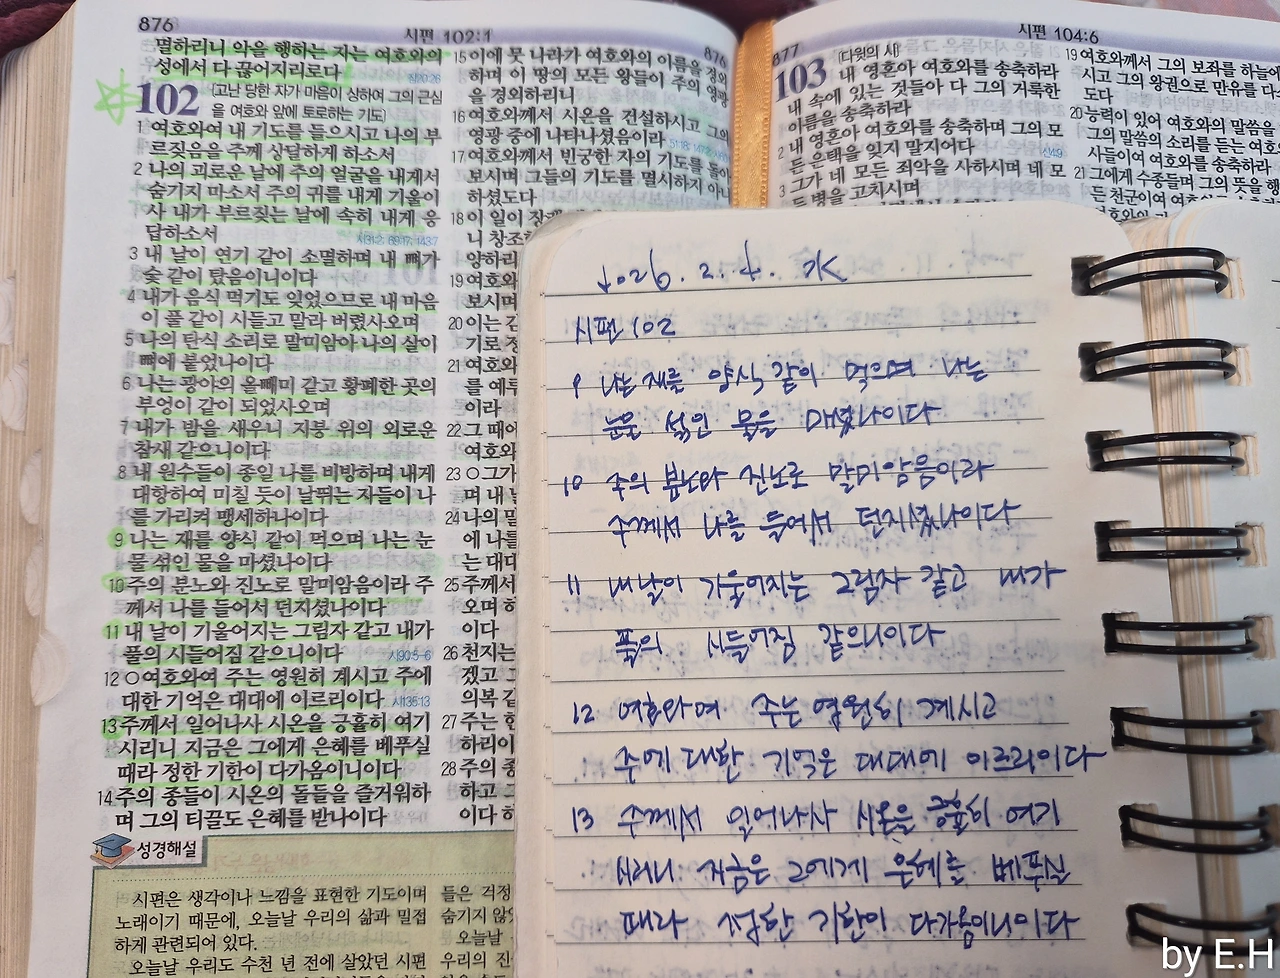 876
시편 102:1
876
멸하리니 악을 행하는 자는 여호와의
성에서 다 끊어지리로다
102
(고난 당한 자가 마음이 상하여 그의 근심
을 여호와 앞에 토로하는 기도)
1 여호와여 내 기도를 들으시고 나의 부
르짖음을 주께 상달하게 하소서
2 나의 괴로운 날에 주의 얼굴을 내게서
숨기지 마소서 주의 귀를 내게 기울이
사 내가 부르짖는 날에 속히 내게 응
답하소서
시31:2; 69:17; 143:7
3 내 날이 연기 같이 소멸하며 내 뼈가
숯 같이 탔음이니이다
4 내가 음식 먹기도 잊었으므로 내 마음
이 풀 같이 시들고 말라 버렸사오며
5 나의 탄식 소리로 말미암아 나의 살이
뼈에 붙었나이다
6 나는 광야의 올빼미 같고 황폐한 곳의
부엉이 같이 되었사오며
7 내가 밤을 새우니 지붕 위의 외로운
참새 같으니이다
8 내 원수들이 종일 나를 비방하며 내게
대항하여 미칠 듯이 날뛰는 자들이 나
를 가리켜 맹세하나이다
9 나는 재를 양식 같이 먹으며 나는 눈
물 섞인 물을 마셨나이다
10 주의 분노와 진노로 말미암음이라 주
께서 나를 들어서 던지셨나이다
11 내 날이 기울어지는 그림자 같고 내가
풀의 시들어짐 같으니이다 시90:5-6
12 ○여호와여 주는 영원히 계시고 주에
대한 기억은 대대에 이르리이다 시135:13
13 주께서 일어나사 시온을 긍휼히 여기
시리니 지금은 그에게 은혜를 베푸실
때라 정한 기한이 다가옴이니이다
14 주의 종들이 시온의 돌들을 즐거워하
며 그의 티끌도 은혜를 받나이다
성경해설
시편은 생각이나 느낌을 표현한 기도이며
노래이기 때문에, 오늘날 우리의 삶과 밀접
하게 관련되어 있다.
오늘날 우리도 수천 년 전에 살았던 시편
들은 걱정
숨기지 않
오늘날
우리의 진
15 이에 뭇 나라가 여호와의 이름을 경외
하며 이 땅의 모든 왕들이 주의 영광
을 경외하리니
16 여호와께서 시온을 건설하시고 그의
영광 중에 나타나셨음이라
17 여호와께서 빈궁한 자의 기도를 돌아
보시며 그들의 기도를 멸시하지 아니
하셨도다
18 이 일이 장래
니 창조
양하리
19 여호와
보시며
20 이는
기로
21 여호와
를 예루
이라
22 그 때에
여호와
23 ○그가
며 내
24 나의
에 나를
는 대대
25 주께서
오며
이다
26 천지는
겠고 그
의복 같
27 주는
하리이
28 주의 종
하고 그
이다
877
시편 104:6
103
(다윗의 시)
내 영혼아 여호와를 송축하라
내 속에 있는 것들아 다 그의 거룩한
이름을 송축하라
2 내 영혼아 여호와를 송축하며 그의 모
든 은택을 잊지 말지어다
3 그가 네 모든 죄악을 사하시며 네 모
든 병을 고치시며
19 여호와께서 그의 보좌를 하늘에
시고 그의 왕권으로 만유를 다스
도다
20 능력이 있어 여호와의 말씀을
그의 말씀의 소리를 듣는 여호와
사들이여 여호와를 송축하라
21 그에게 수종들며 그의 뜻을 행
든 천군이여
2026. 2. 4. 水
시편 102
9 나는 재를 양식 같이 먹으며 나는
눈물 섞인 물을 마셨나이다
10 주의 분노와 진노로 말미암음이라
주께서 나를 들어서 던지셨나이다
11 내 날이 기울어지는 그림자 같고 내가
풀의 시들어짐 같으니이다
12 여호와여 주는 영원히 계시고
주에 대한 기억은 대대에 이르리이다
13 주께서 일어나사 시온을 긍휼히 여기
시리니 지금은 그에게 은혜를 베푸실
때라 정한 기한이 다가옴이니이다
by E.H